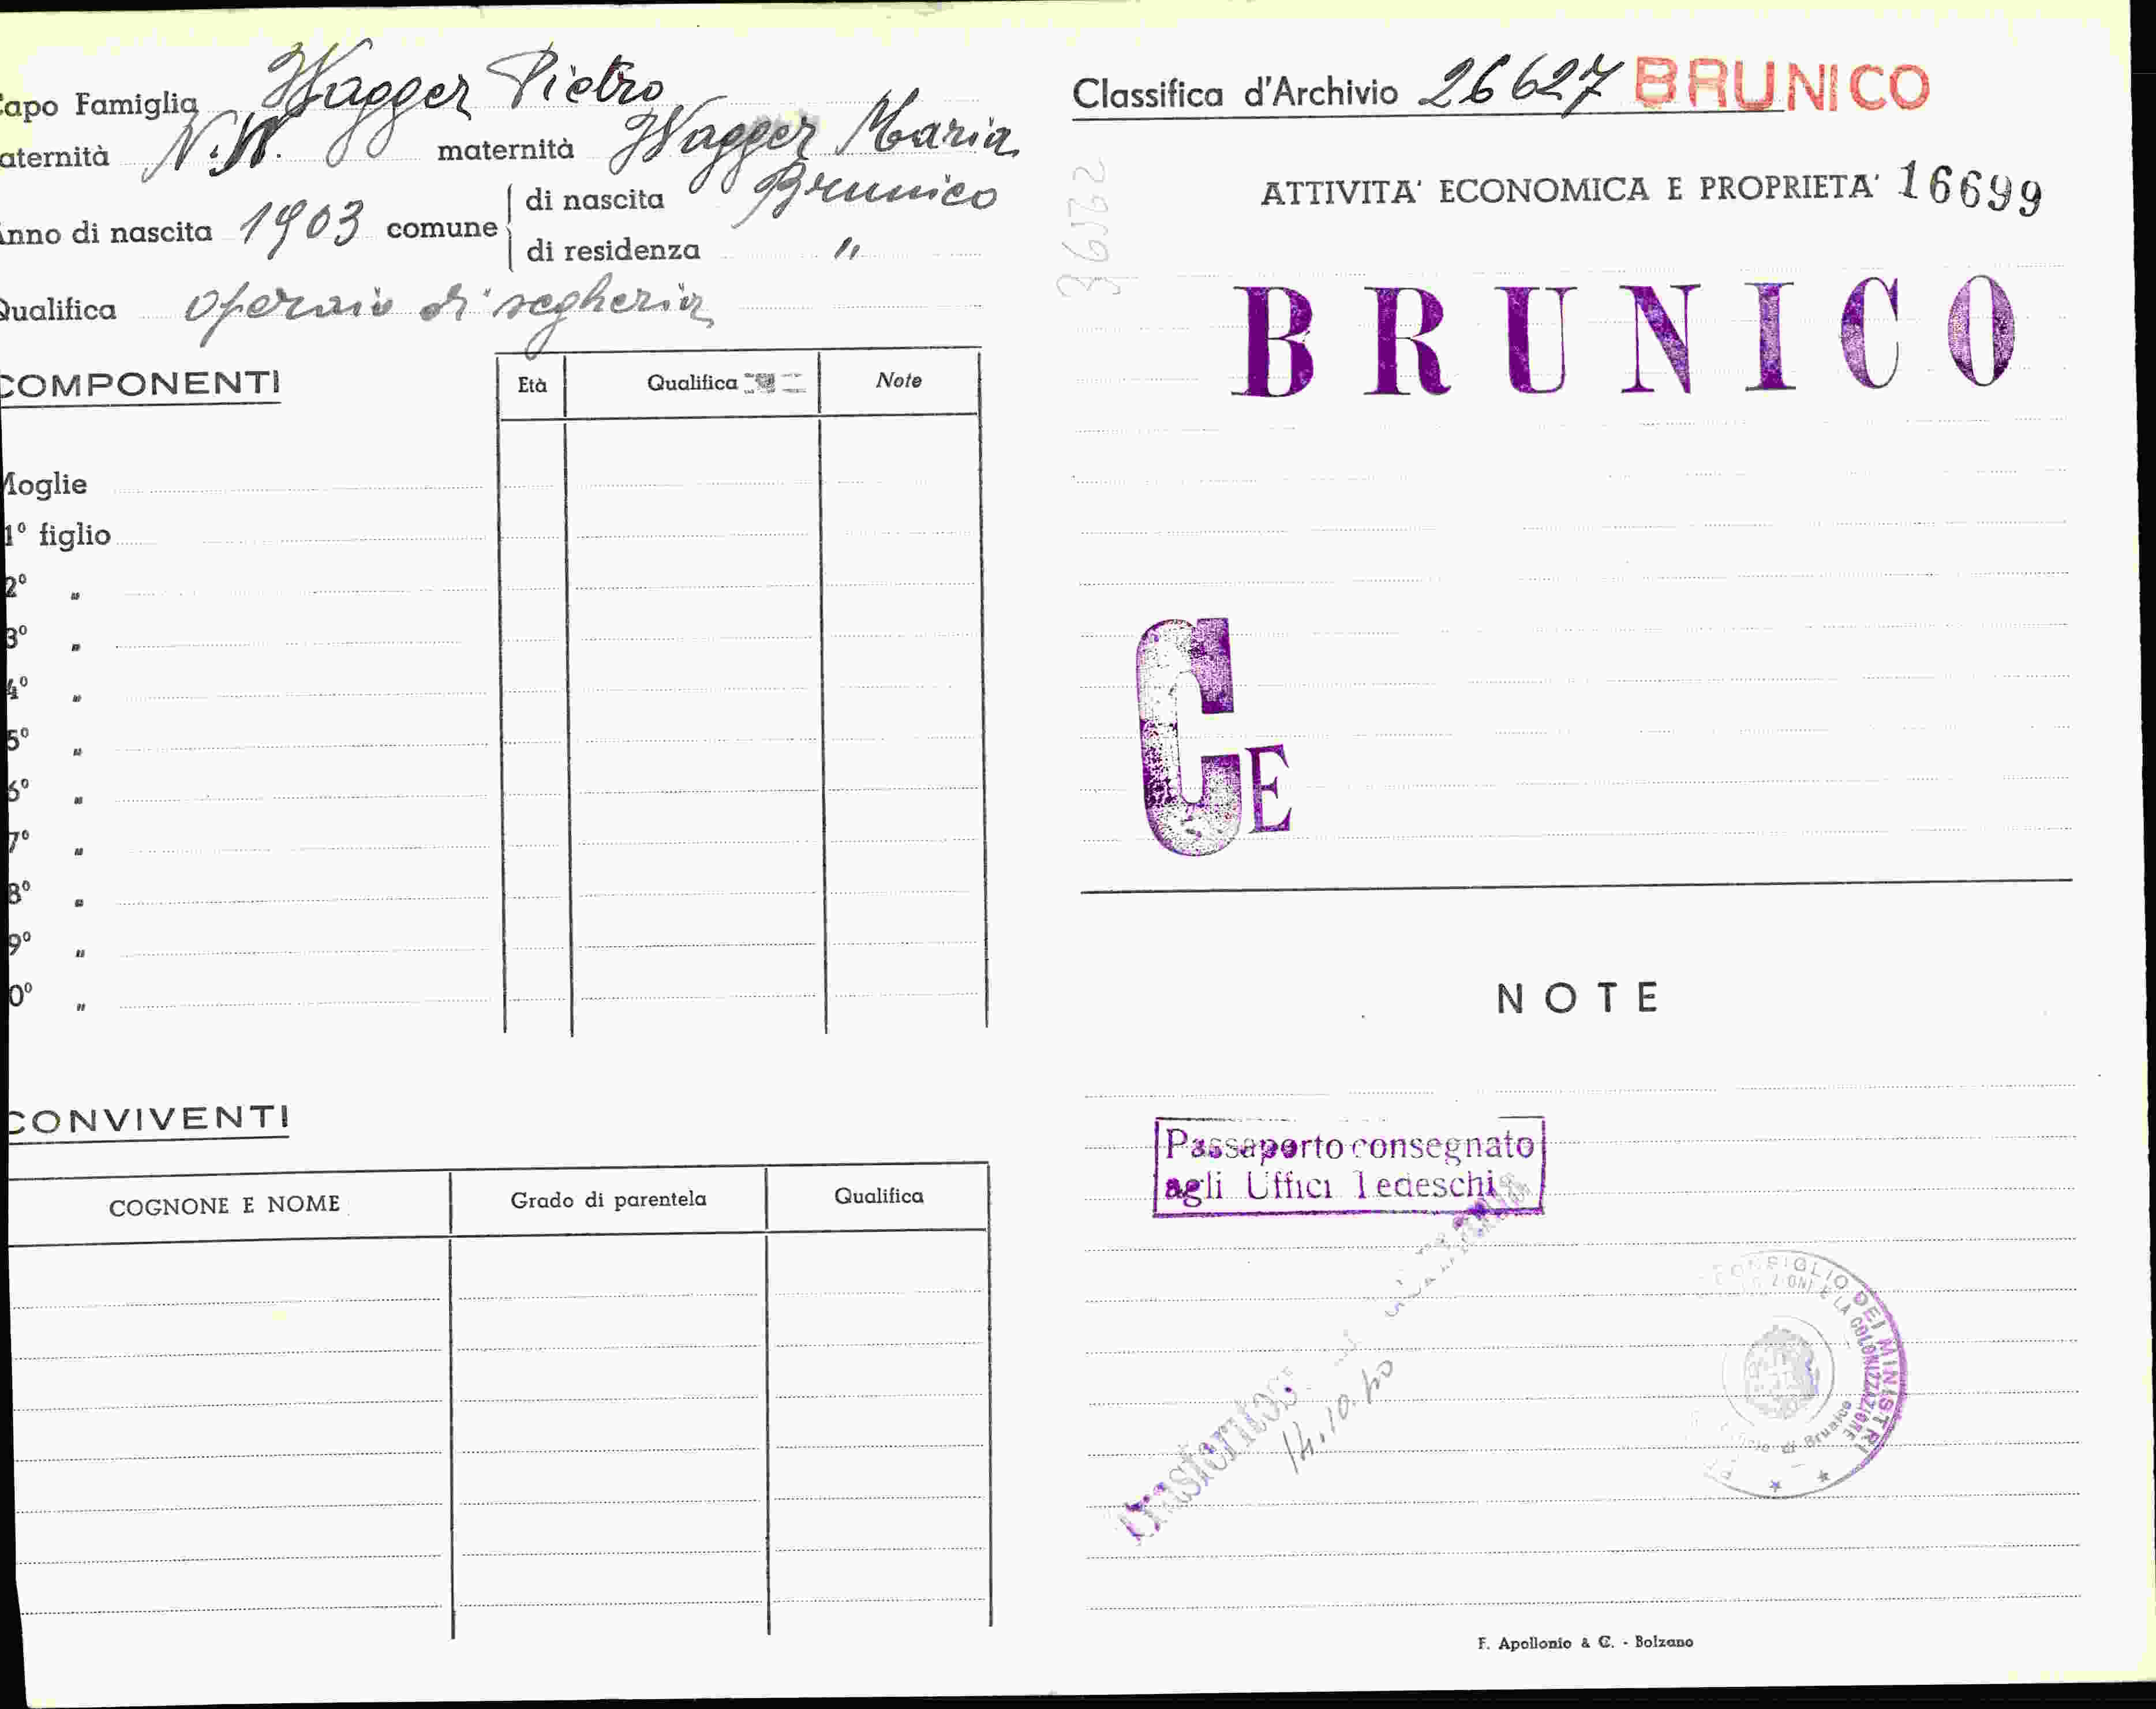 apo Famiglia Wagger Pietro
aternità N.N. maternità Wagger Maria
nno di nascita 1903 comune di nascita Brunico
di residenza "
Qualifica operaio di segheria
COMPONENTI
Età Qualifica Note
Moglie
1º figlio
2º "
3º "
4º "
5º "
6º "
7º "
8º "
9º "
0º "
CONVIVENTI
COGNONE E NOME Grado di parentela Qualifica
Classifica d'Archivio 26627 BRUNICO
ATTIVITA' ECONOMICA E PROPRIETA' 16699
BRUNICO
CE
NOTE
Passaporto consegnato
agli Uffici Tedeschi
14.10.40
CONSIGLIO DEI MINISTRI
E LA COLONIZZAZIONE
di Brunico
F. Apollonio & C. - Bolzano